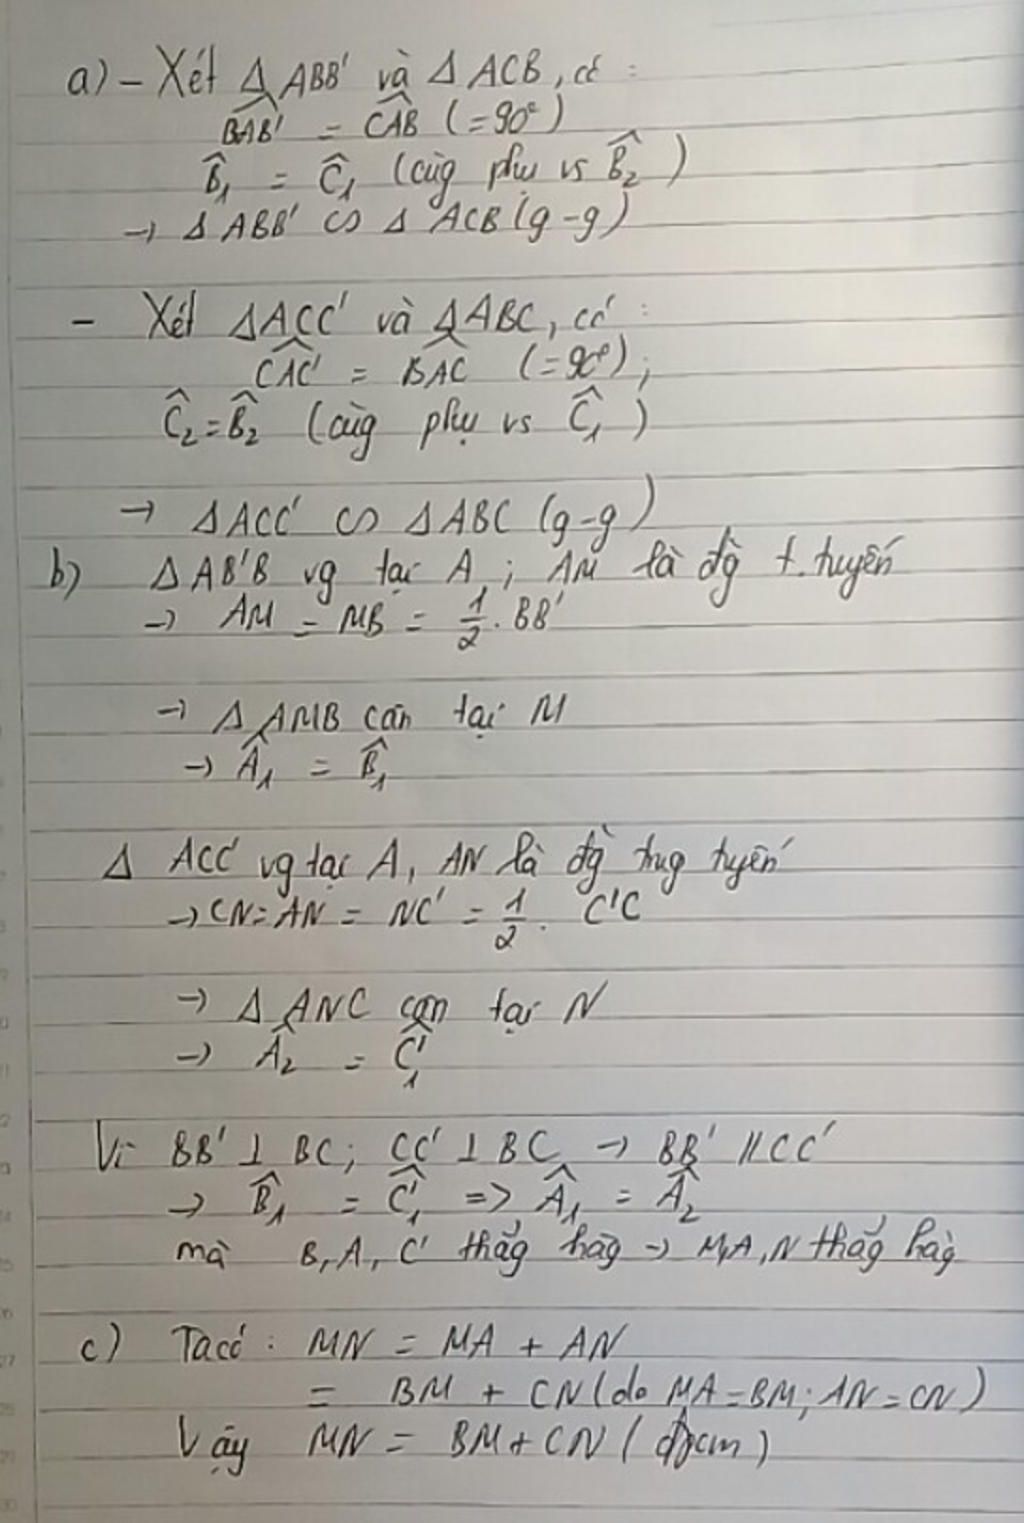 a) – Xét Δ ABB' và Δ ACB, có :
BAB' = CAB (= 90°)
B̂₁ = Ĉ₁ (cùg phụ vs B̂₂)
→ Δ ABB' ∽ Δ ACB (g-g)
– Xét ΔACC' và ΔABC, có :
CAC' = BAC (= 90°);
Ĉ₂ = B̂₂ (cùg phụ vs Ĉ₁)
→ ΔACC' ∽ ΔABC (g-g)
b) ΔAB'B vg tại A ; AM là đg̀ t.tuyến
→ AM = MB = 1/2 . BB'
→ Δ AMB cân tại M
→ Â₁ = B̂₁
Δ ACC' vg tại A, AN là đg̀ trug tuyến
→ CN = AN = NC' = 1/2 . C'C
→ Δ ANC cân tại N
→ Â₂ = Ĉ'₁
Vì BB' ⊥ BC; CC' ⊥ BC → BB' // CC'
→ B̂₁ = Ĉ'₁ => Â₁ = Â₂
mà B, A, C' thẳg hàg → M,A,N thẳg hàg
c) Ta có : MN = MA + AN
= BM + CN (do MA = BM; AN = CN)
Vậy MN = BM + CN (đpcm)